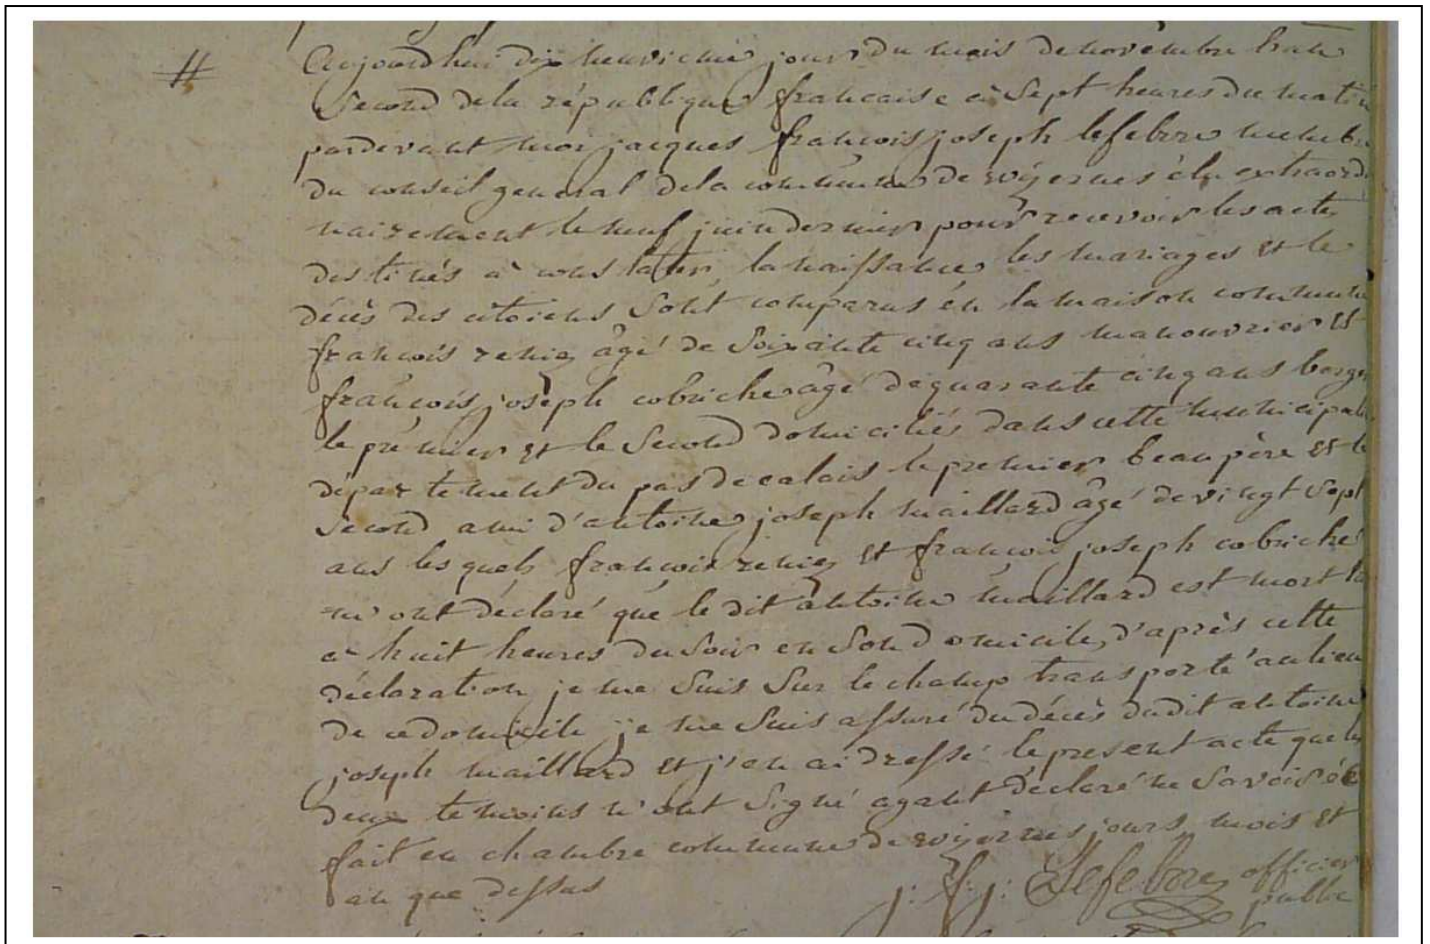 #
Aujourdhui dix neuvieme jour du mois de novembre l'an
second dela république francaise à sept heures du matin
pardevant moi jacques francois joseph lefebvre membre
du conseil general dela commune de wizernes élu extraordi
nairement le neuf juin dernier pour recevoir les actes
destinés à constater la naissance les mariages et le
décès des citoiens sont comparus én la maison commune
francois âgé de soixante cinq ans manouvrier et
francois joseph cobriche âgé de quarante cinq ans berger
le prémier et le second domiciliés dans cette municipali
département du pas de calais le premier beau père et le
second ami d'antoine joseph maillard âgé de vingt sept
ans les quels francois et francois joseph cobriche
m'ont déclaré que le dit antoine maillard est mort
à huit heures du soir en son domicile, d'après cette
déclaration je me suis sur le champ transporté au lieu
de ce domicile je me suis assuré du décès dudit antoine
joseph maillard et j'en ai dressé le présent acte que les
deux temoins n'ont signé ayant déclaré ne savoir
fait en chambre commune de wizernes jours mois et
an que dessus
j: f: j: Lefebvre officier
public